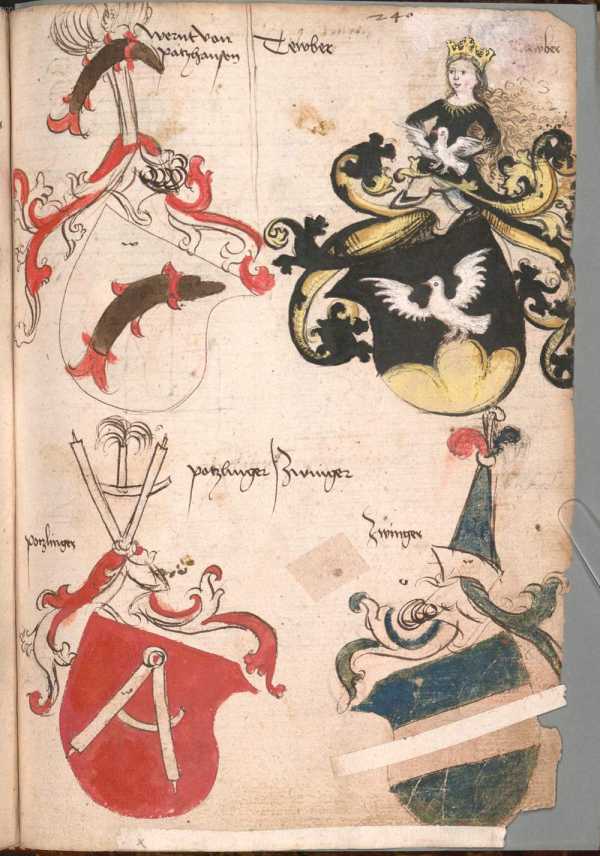 240
Wernt von
patzhausen
Tewber
potzlinger
Zwinger
potzlinger
Zwinger
w
w
w
w